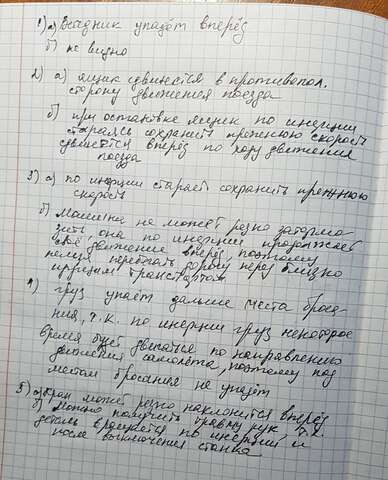 1) а) Всадник упадёт вперёд
б) не видно
2) а) ящик сдвинется в противопол.
сторону движения поезда
б) при остановке ящик по инерции
стараясь сохранить прежнюю скорость
сдвинется вперёд по ходу движения
поезда
3) а) по инерции старает сохранить прежнюю
скорость
б) Машина не может резко затормо
зить, она по инерции продолжает
своё движение вперёд, поэтому
нельзя перебегать дорогу перед близко
идущим транспортом
4) груз упадёт дальше места броса-
ния, т.к. по инерции груз некоторое
время будет двигаться по направлению
движения самолёта, поэтому под
местом бросания не упадёт
5) а) кран может резко наклонится вперёд
б) Можно получить травму рук, т.к.
деталь вращается по инерции и
после выключения станка